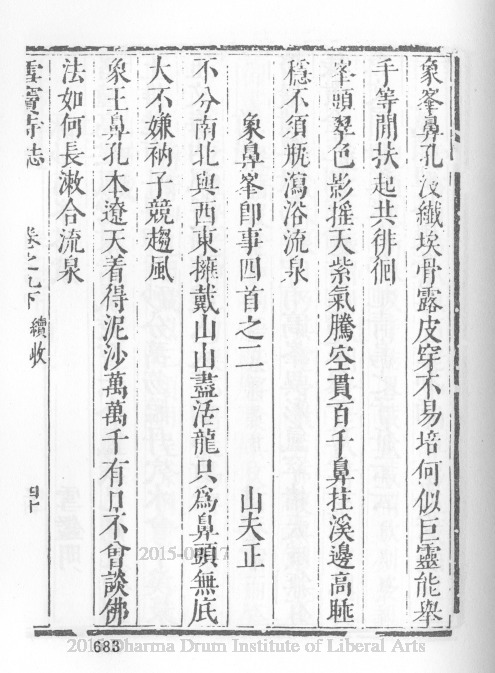 象峯鼻孔沒纖埃骨露皮穿不易培何似巨靈能舉
手等閒扶起共徘徊
峯頭翠色影搖天紫氣騰空貫百千鼻拄溪邊高睡
穩不須瓶瀉浴流泉
象鼻峯卽事四首之二　山夫正
不分南北與西東擁戴山山盡活龍只爲鼻頭無底
大不嫌衲子競趨風
象王鼻孔本遼天着得泥沙萬萬千有口不會談佛
法如何長漱合流泉
雪竇寺志　卷之九下　續收　四十
683
2015-06-17
2015 Dharma Drum Institute of Liberal Arts